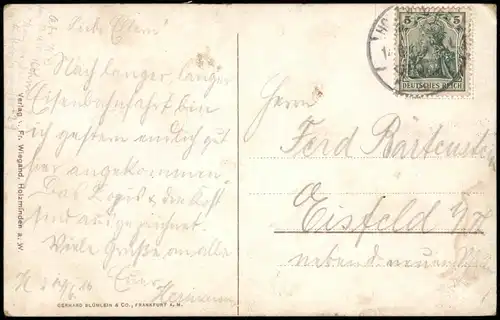 Liebe Eltern!
Nach langer, langer
Eisenbahnfahrt bin
ich gestern endlich gut
hier angekommen.
Das Logis & die Kost
sind ausgezeichnet.
Viele Grüße an alle
Euer
Hermann
Verlag v. Fr. Wiegand, Holzminden a. W
GERHARD BLÜMLEIN & CO., FRANKFURT A. M.
5 5
DEUTSCHES REICH
Herrn
Ferd Bartenstein
Eisfeld
neben d. neuen